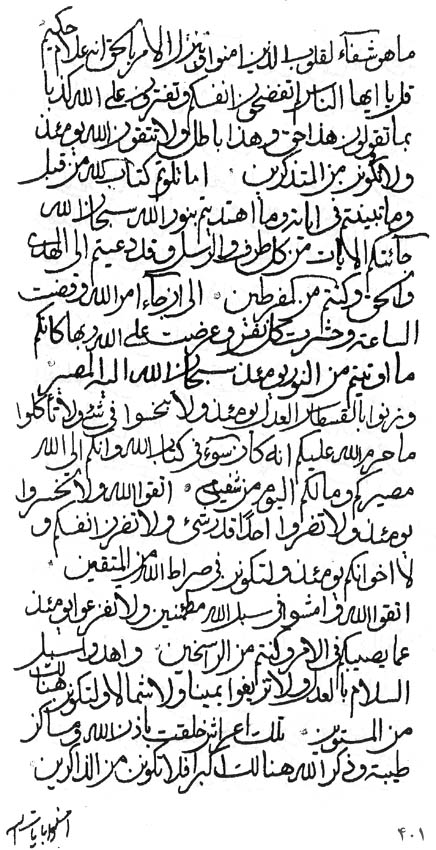 ما هو شفآء لقلوب الذين امنوا وينزل الامر بالحق انه علام حكيم
قل يا ايها الناس اتفضحون انفسكم وتفترون على الله كذبا
بما تقولون هذا حق وهذا باطل ولا تتقون الله يومئذ
ولا تكونن من المتذكرين اما تلوتم كتاب الله من قبل
وما تبينتم فى اياته وما اهتديتم بنور الله سبحان الله
جائتكم الايات من كل طرف والرسل وقد دعيتم الى الهدى
والحق وكنتم من المفرطين الى ان جآء امر الله وقضت
الساعة وحشرت كل نفس وعرضت على الله ربها كانكم
ما اوتيتم من النور يومئذ سبحان الله اليه المصير
وزنوا بالقسطاس العدل يومئذ ولا تبخسوا فى شئ ولا تأكلوا
ما حرم الله عليكم انه كان سوء فى كتاب الله وانكم الى الله
مصيركم وما لكم اليوم من شفيع اتقوا الله ولا تخسروا
يومئذ ولا تضروا احدا قدر شئ ولا تضرن انفسكم و
لا اخوانكم يومئذ ولتكونن فى صراط الله من المتقين
اتقوا الله وامشوا فى سبل الله مطمئنين ولا تفزعوا يومئذ
عما يصيبكم فى الامر وكنتم من الراسخين واهدوا سبل
السلام بالعدل ولا تزيغوا يمينا ولا شمالا ولتكونن هنالك
من المستوين تلك اعراش خلقت باذن الله ومساكن
طيبة وذكر الله هنالك اكبر افلا تكونن من الذاكرين
٤٠١